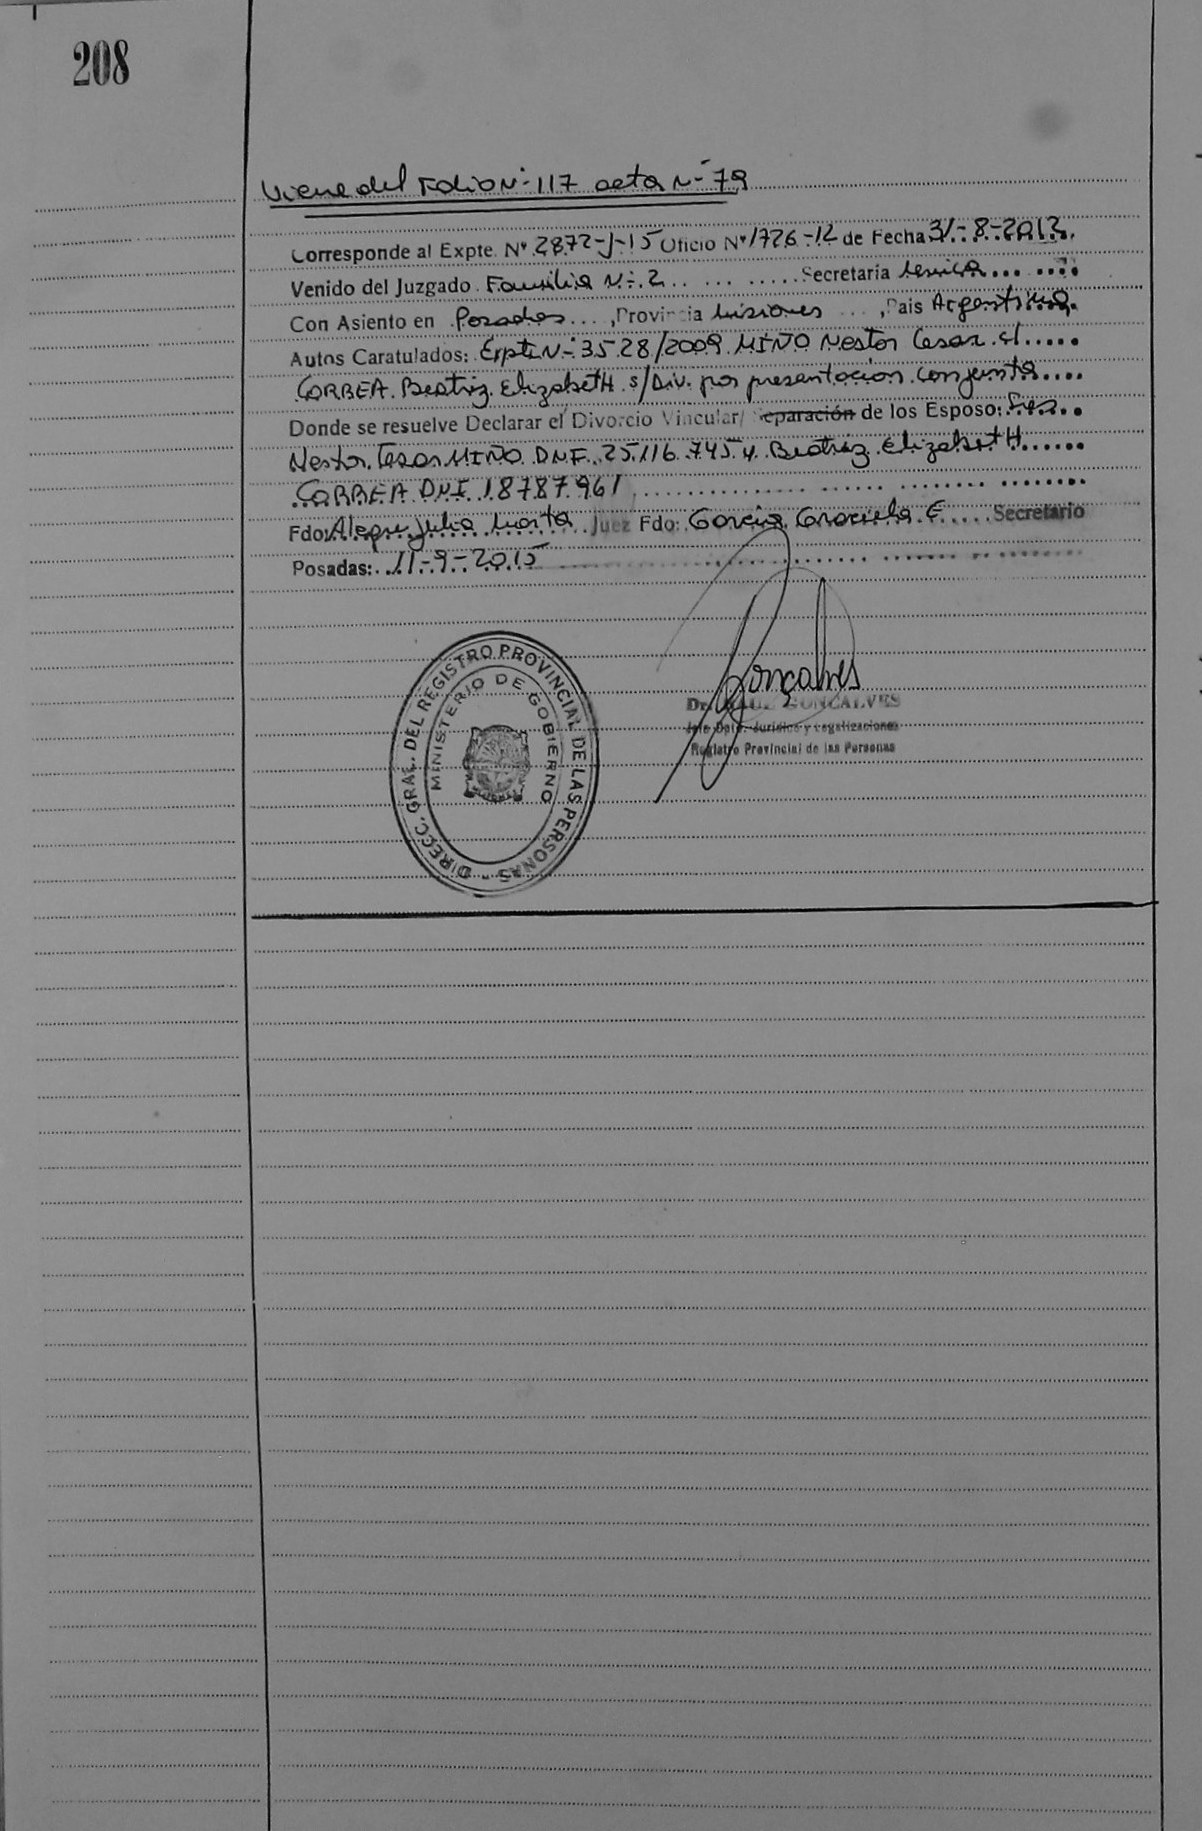 208
Viene del Folio Nº 117 acta Nº 79
Corresponde al Expte. Nº 2872-J-15 Oficio Nº 1726-12 de Fecha 31-8-2012.
Venido del Juzgado Familia Nº 2 Secretaria
Con Asiento en Posadas, Provincia Misiones, Pais Argentina.
Autos Caratulados: Expte Nº 3528/2009 MIÑO Nestor Cesar c/
CORREA Beatriz ElizabetH s/Div. por presentacion conjunta
Donde se resuelve Declarar el Divorcio Vincular/ Separación de los Esposo: Sres
Nestor Cesar MIÑO DNI 25.116.745 y Beatriz ElizabetH
CORREA DNI 18787961
Fdo: Alegre Julia Marta Juez Fdo: Garcia Graciela E Secretario
Posadas: 11-9-2015
Gonçalves
Dr. RAUL GONCALVES
Jefe Dpto. Jurídico y Legalizaciones
Registro Provincial de las Personas
DIRECC. GRAL. DEL REGISTRO PROVINCIAL DE LAS PERSONAS -
MINISTERIO DE GOBIERNO